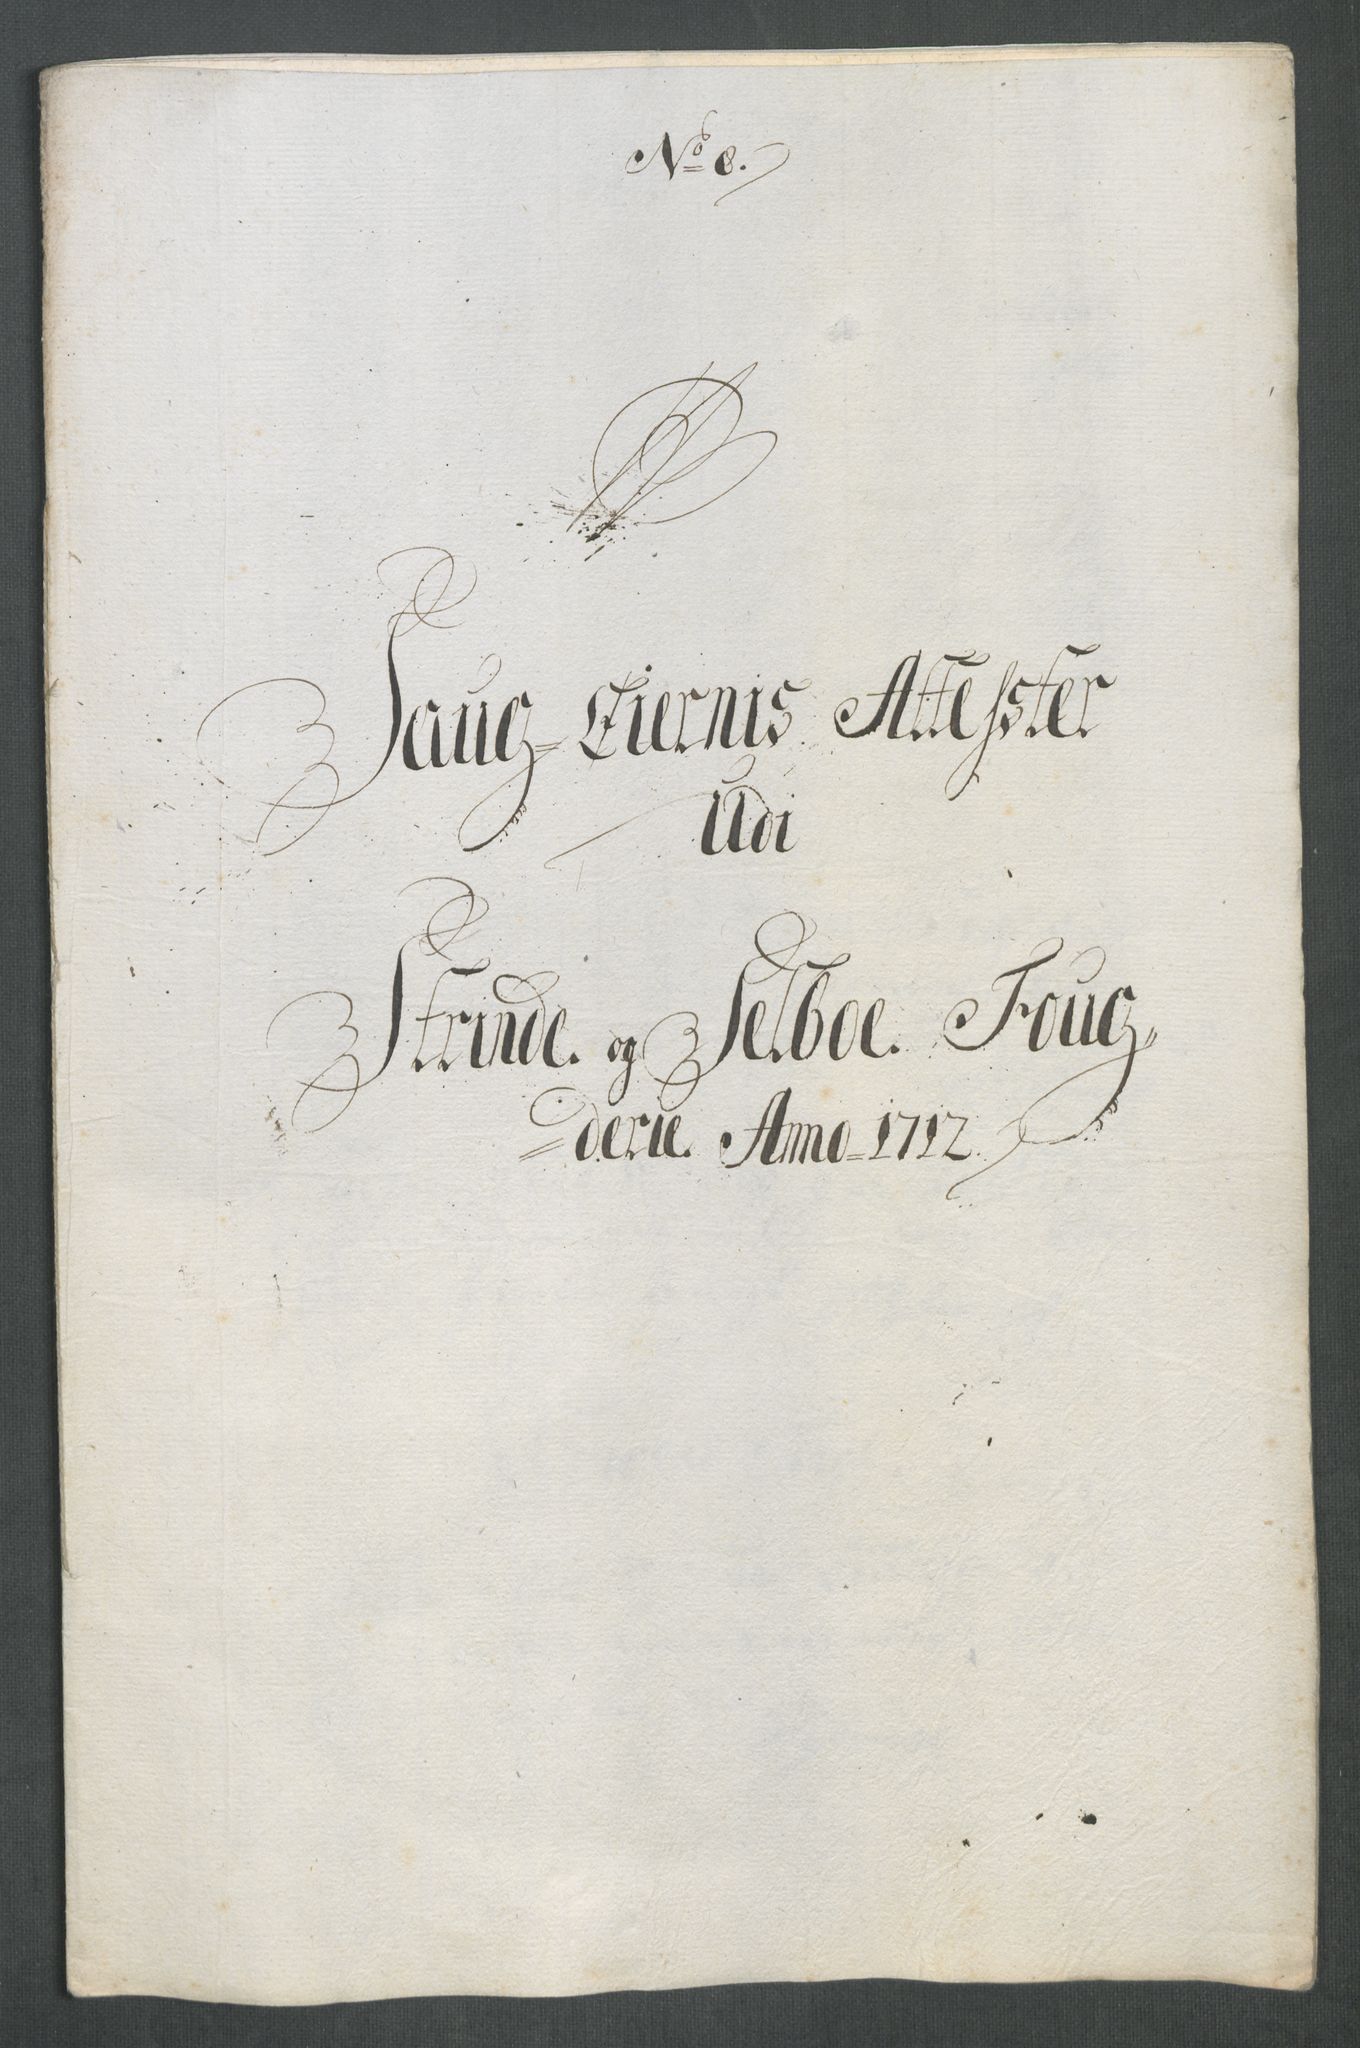 No 8.
Saug-Eiernis Attesster
Udi
Strinde. og Selboe. Foug-
derie. Anno-1712.